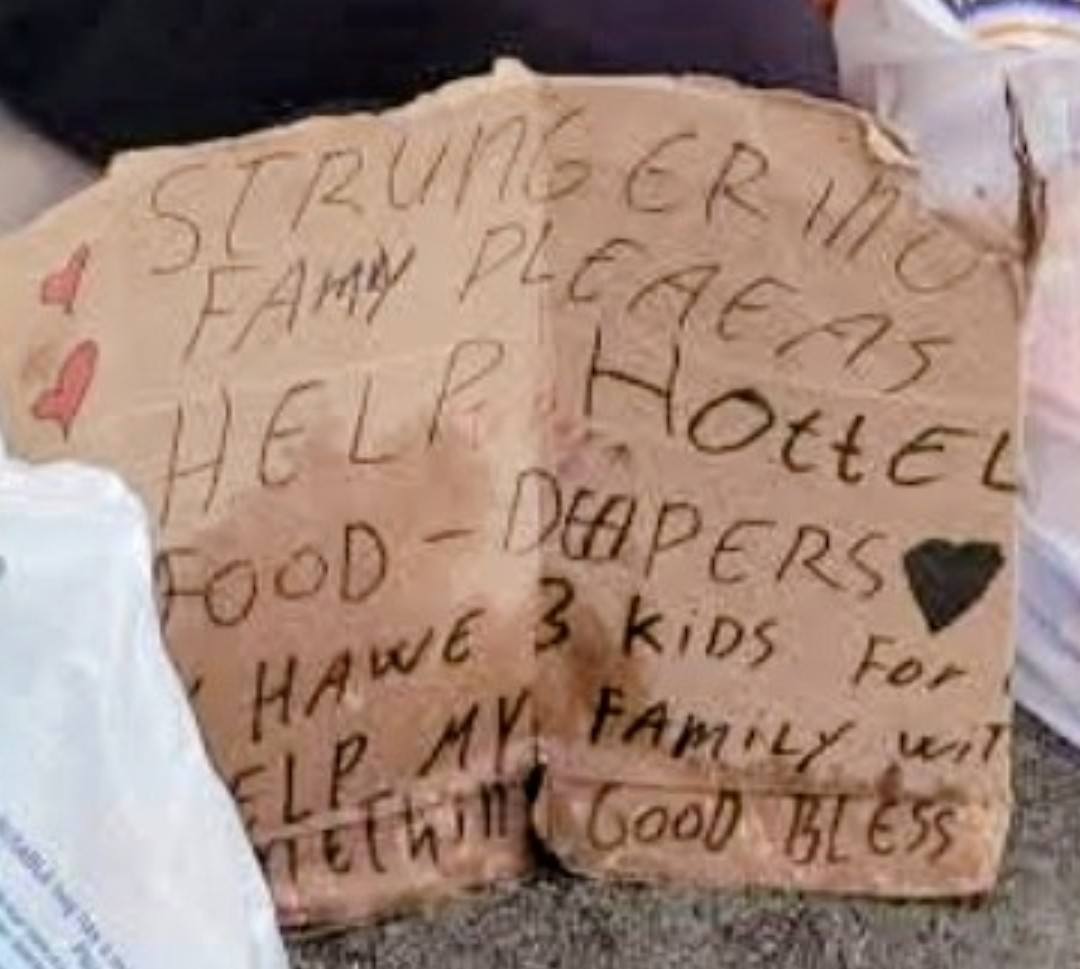 STRUNGER INU
FAMMY PLEAEAS
HELP HOttEL
FOOD - DEAPERS
HAWE 3 KiDS For
ELP MY FAMiLY wiT
meThin GOOD BLESS